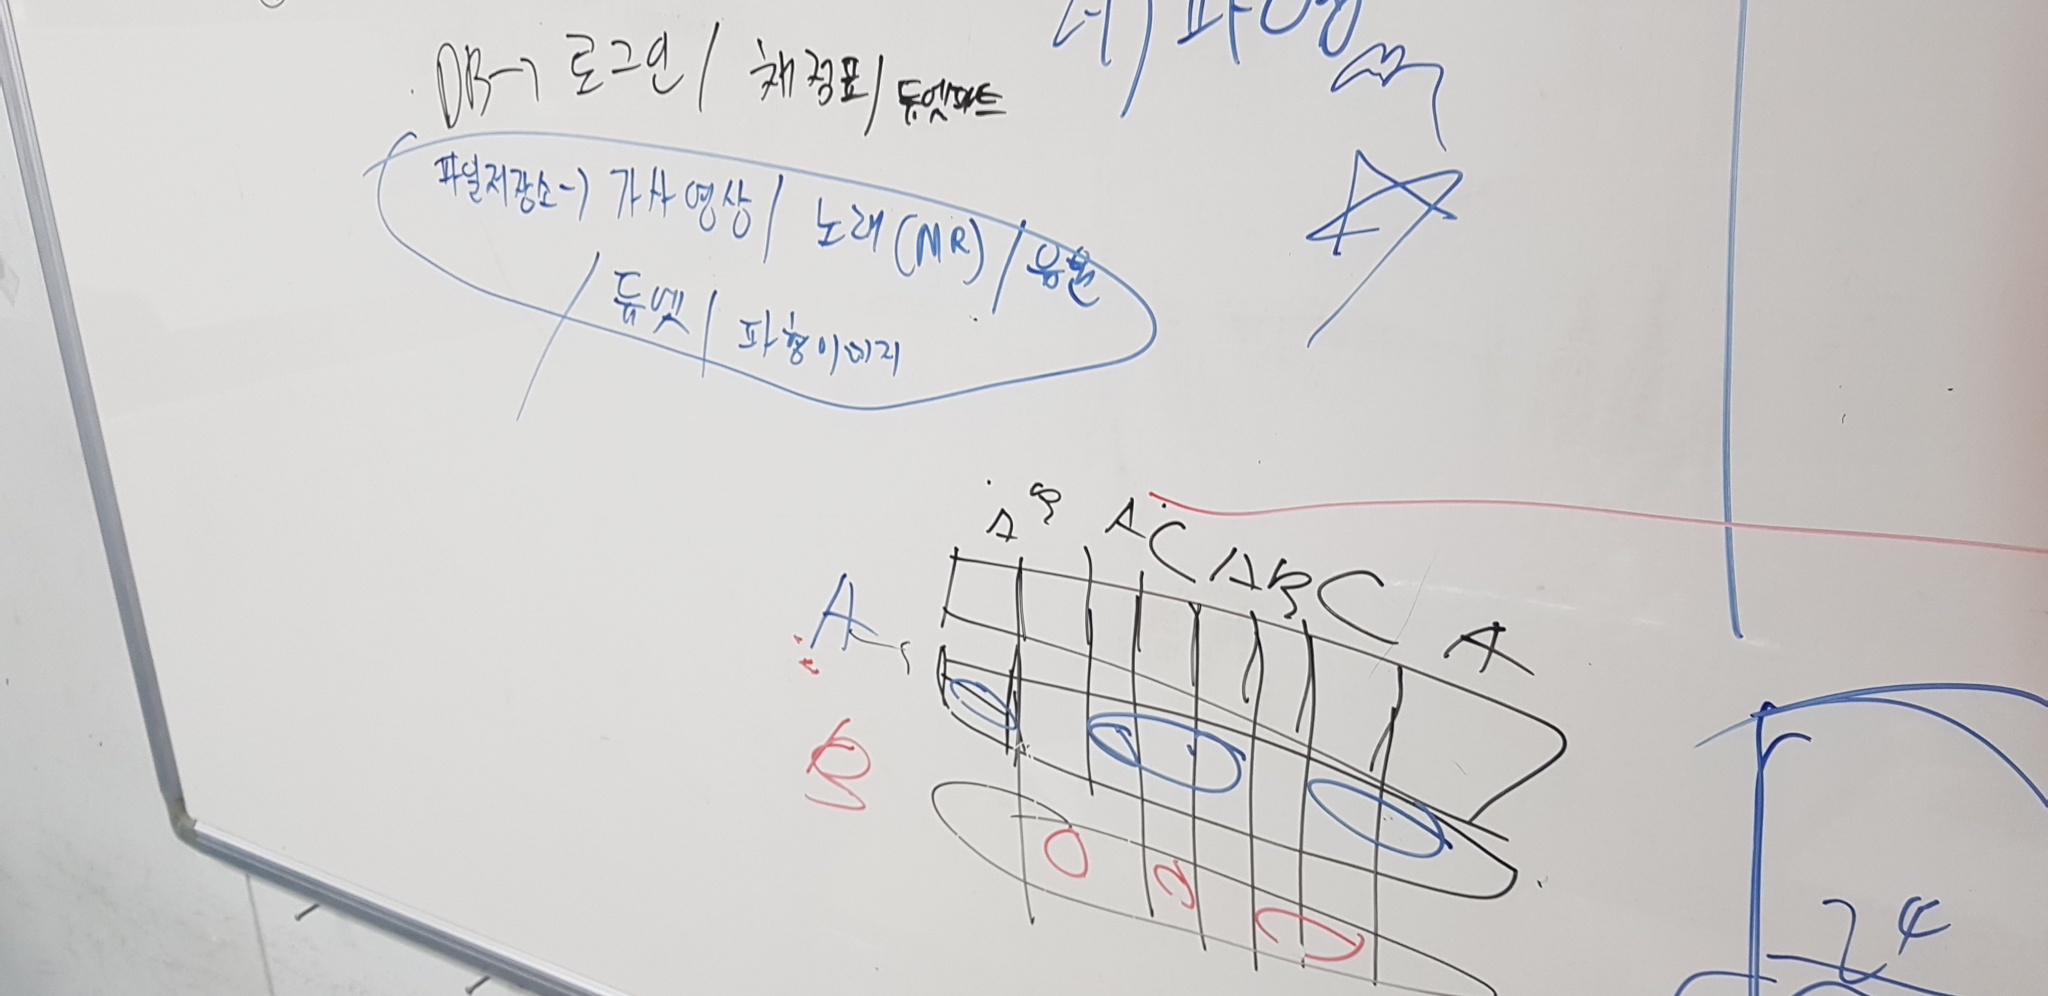 DB→ 로그인 / 채점표 / 듀엣파트
파일저장소→ 가사영상 / 노래(MR) / 음원
/ 듀엣 / 파형이미지
A B A C A B C A
A
B
24